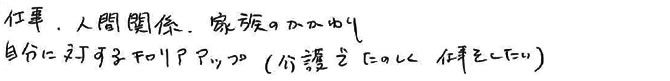 仕事、人間関係、家族のかかわり
自分に対するキャリアアップ (介護でたのしく 仕事をしたい)